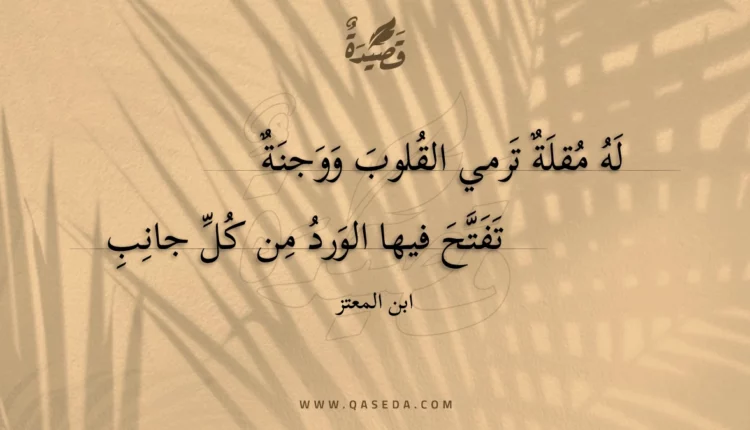 قَصِيْدَةٌ
لَهُ مُقلَةٌ تَرمي القُلوبَ وَوَجنَةٌ
تَفَتَّحَ فيها الوَردُ مِن كُلِّ جانِبِ
ابن المعتز
WWW.QASEDA.COM